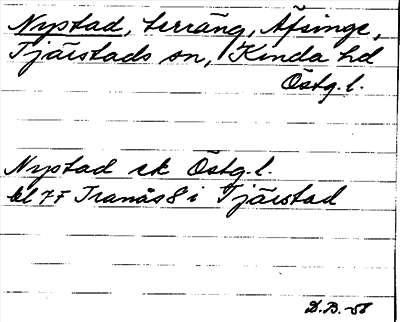 Nystad, terräng, Äfsinge,
Tjärstads sn, Kinda hd
Östg. l.
Nystad ek Östg. l.
bl 7F Tranås 8 i Tjärstad
D.B. -58